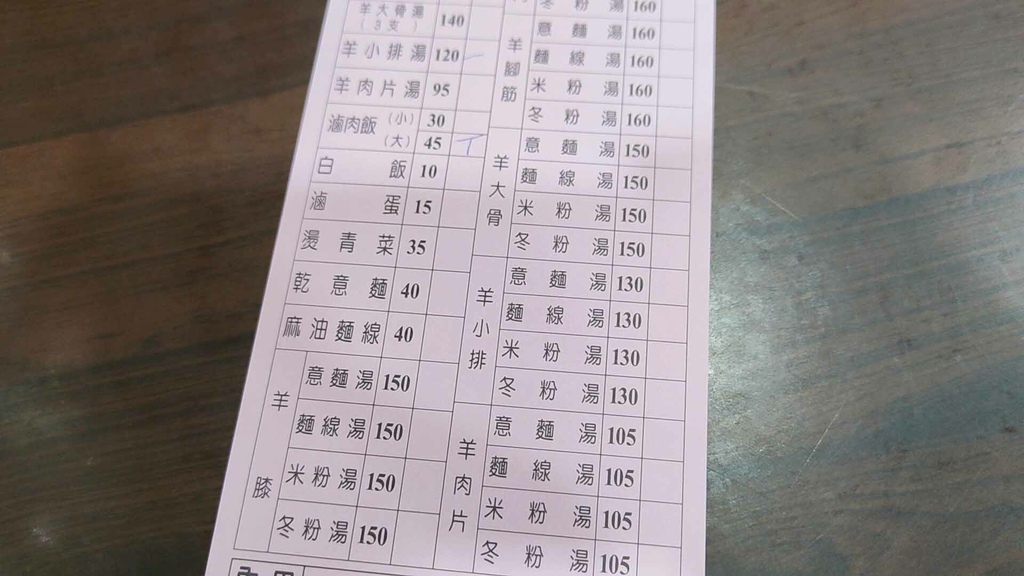 羊大骨湯(3支) 140
羊小排湯 120
羊肉片湯 95
滷肉飯 (小) 30
(大) 45
白飯 10
滷蛋 15
燙青菜 35
乾意麵 40
麻油麵線 40
羊膝
意麵湯 150
麵線湯 150
米粉湯 150
冬粉湯 150
冬粉湯 160
羊腳筋
意麵湯 160
麵線湯 160
米粉湯 160
冬粉湯 160
羊大骨
意麵湯 150
麵線湯 150
米粉湯 150
冬粉湯 150
羊小排
意麵湯 130
麵線湯 130
米粉湯 130
冬粉湯 130
羊肉片
意麵湯 105
麵線湯 105
米粉湯 105
冬粉湯 105